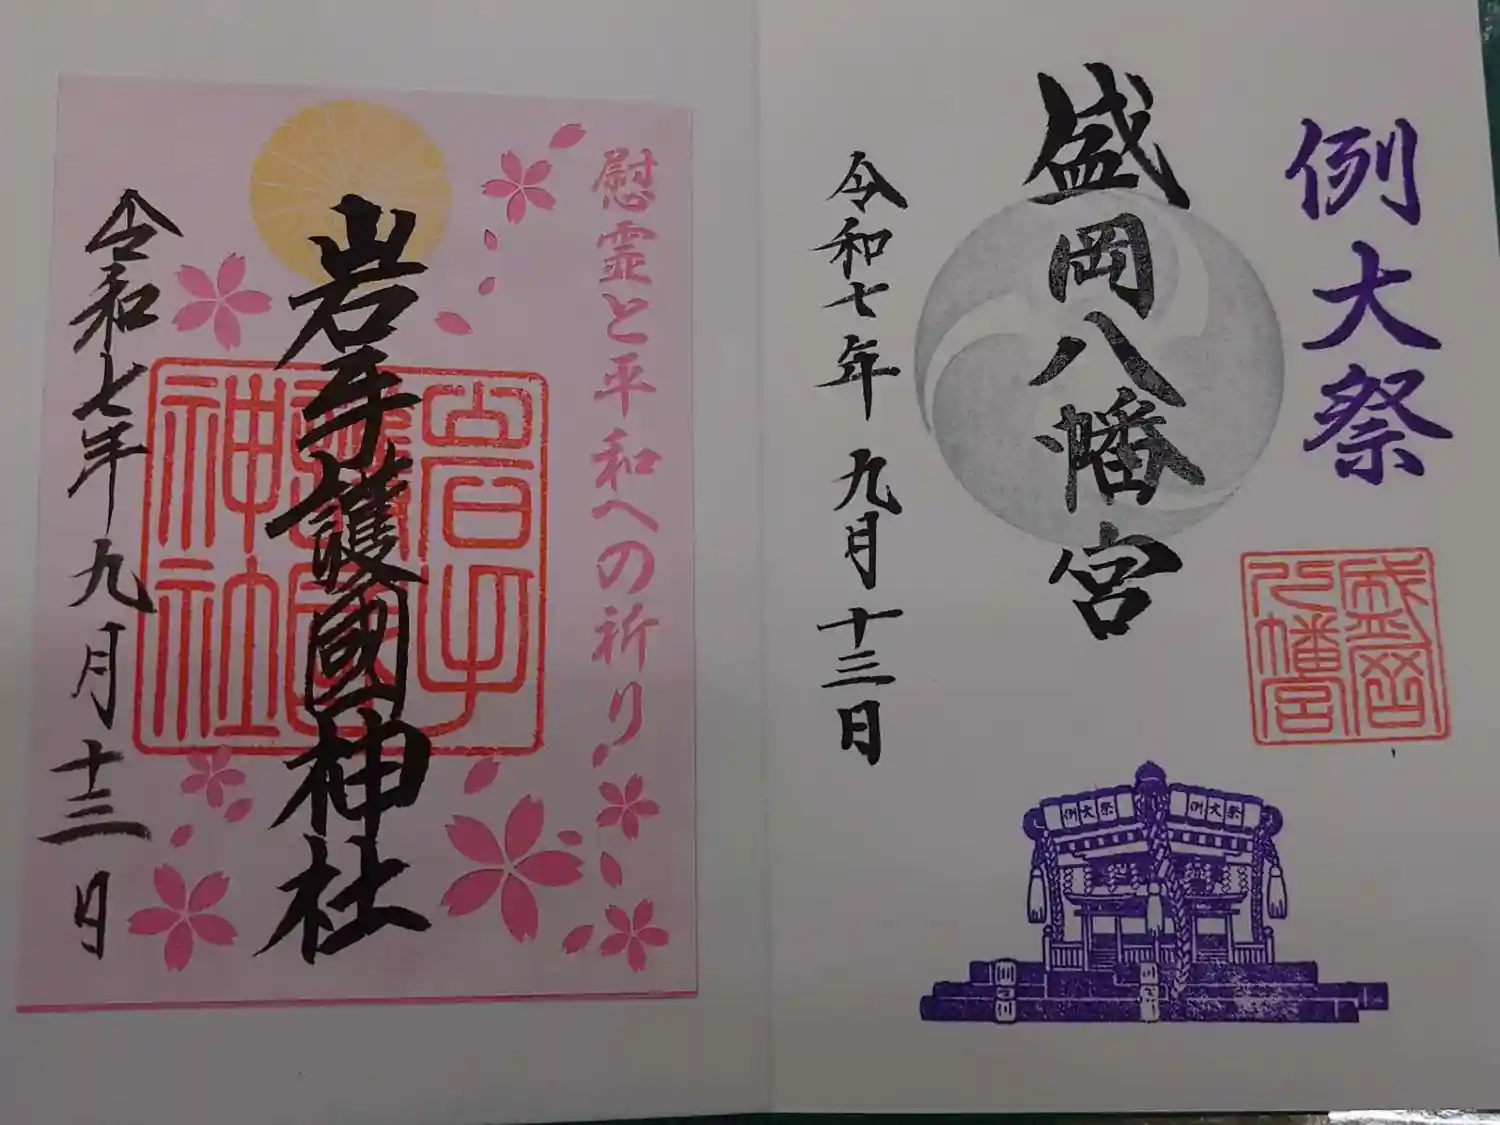 例大祭
盛岡八幡宮
盛岡
八幡宮
令和七年 九月十三日
例大祭
例大祭
慰霊と平和への祈り
岩手護國神社
岩手
護国
神社
令和七年九月十三日